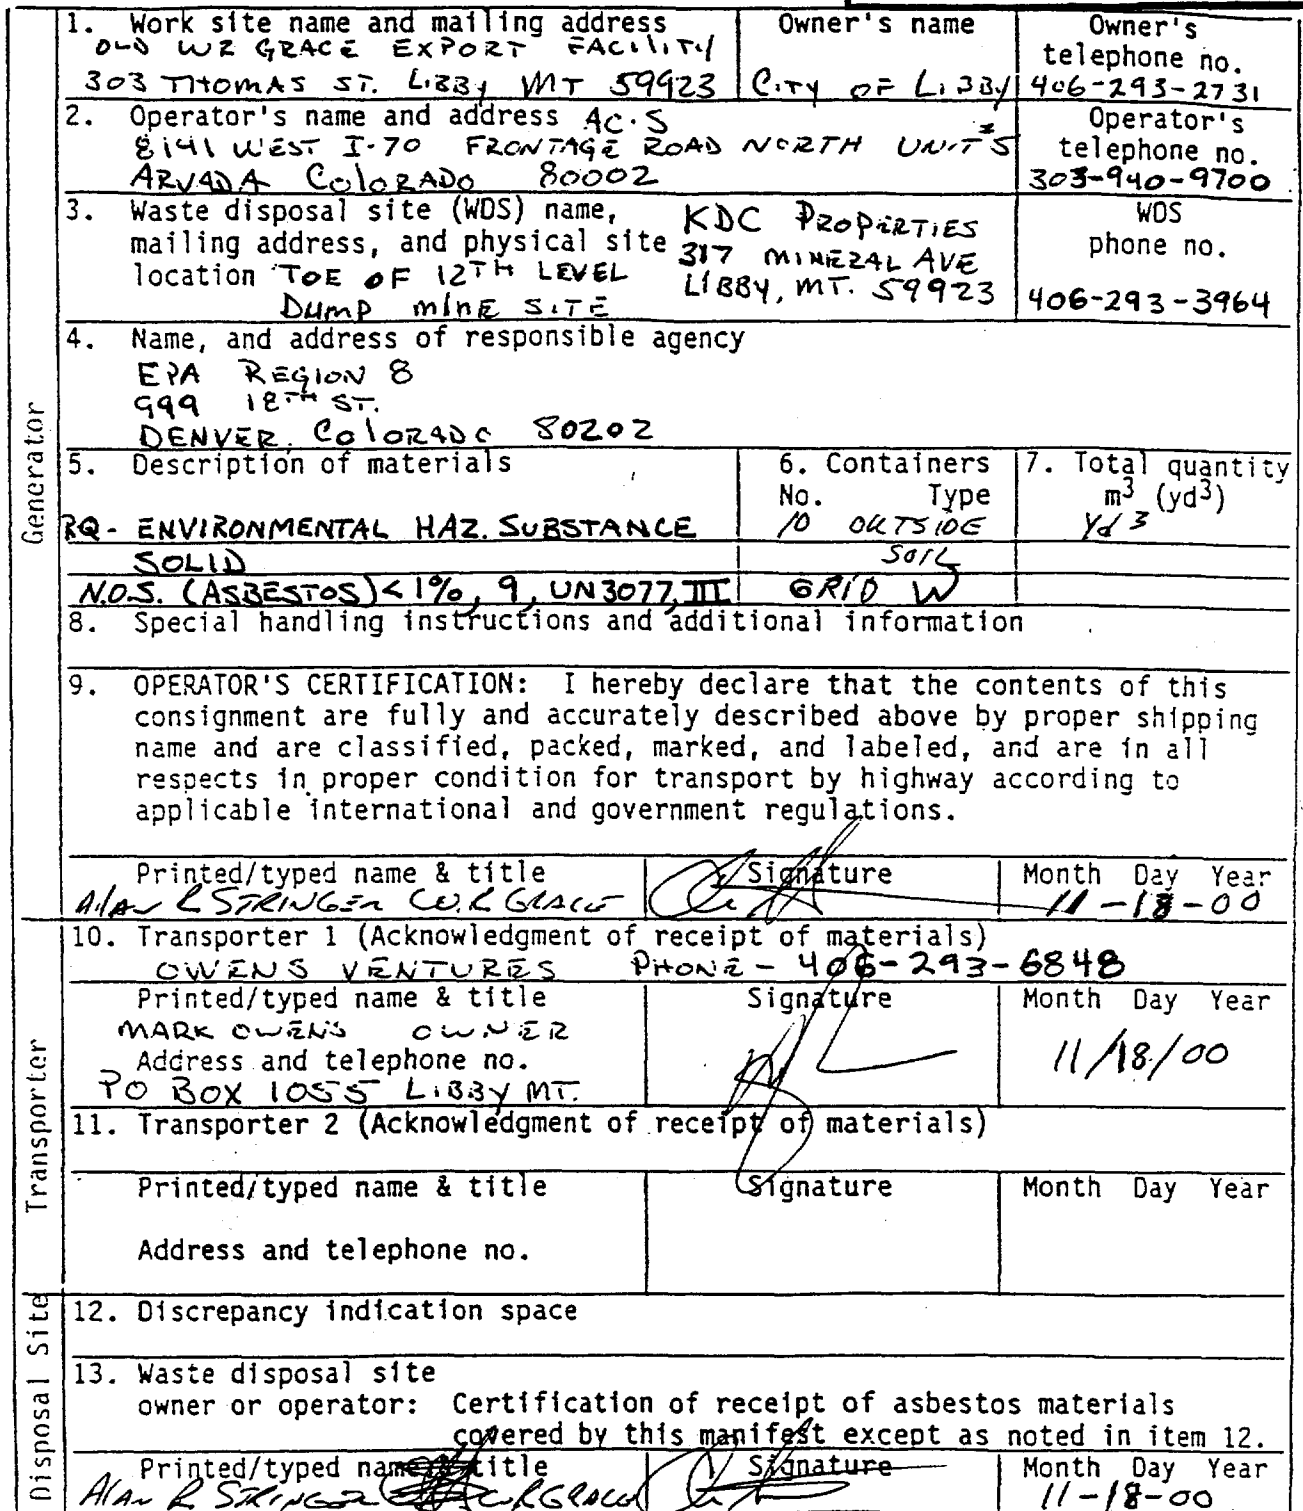 Generator
1. Work site name and mailing address
OLD WR GRACE EXPORT FACILITY
303 THOMAS ST. LIBBY MT 59923
Owner's name
CITY OF LIBBY
Owner's
telephone no.
406-293-2731
2. Operator's name and address AC·S
8141 WEST I-70 FRONTAGE ROAD NORTH UNIT 5
ARVADA COLORADO 80002
Operator's
telephone no.
303-940-9700
3. Waste disposal site (WDS) name,
mailing address, and physical site
location TOE OF 12TH LEVEL
DUMP MINE SITE
KDC PROPERTIES
317 MINERAL AVE
LIBBY, MT. 59923
WDS
phone no.
406-293-3964
4. Name, and address of responsible agency
EPA REGION 8
999 18TH ST.
DENVER, COLORADO 80202
5. Description of materials
RQ - ENVIRONMENTAL HAZ. SUBSTANCE
SOLID
N.O.S. (ASBESTOS) < 1%, 9, UN3077, III
6. Containers
No. Type
10 OUTSIDE
SOIL
GRID W
7. Total quantity
m3 (yd3)
Yd 3
8. Special handling instructions and additional information
9. OPERATOR'S CERTIFICATION: I hereby declare that the contents of this
consignment are fully and accurately described above by proper shipping
name and are classified, packed, marked, and labeled, and are in all
respects in proper condition for transport by highway according to
applicable international and government regulations.
Printed/typed name & title
Alan R STRINGER W.R GRACE
Signature
Month Day Year
11-18-00
Transporter
10. Transporter 1 (Acknowledgment of receipt of materials)
OWENS VENTURES PHONE - 406-293-6848
Printed/typed name & title
MARK OWENS OWNER
Address and telephone no.
PO BOX 1055 LIBBY MT.
Signature
Month Day Year
11/18/00
11. Transporter 2 (Acknowledgment of receipt of materials)
Printed/typed name & title
Address and telephone no.
Signature
Month Day Year
Disposal Site
12. Discrepancy indication space
13. Waste disposal site
owner or operator: Certification of receipt of asbestos materials
covered by this manifest except as noted in item 12.
Printed/typed name & title
Alan R STRINGER W R GRACE
Signature
Month Day Year
11-18-00